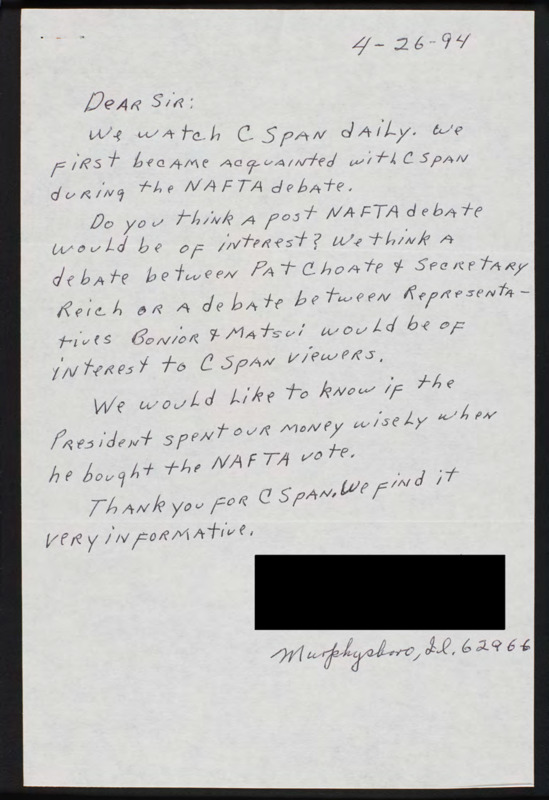 4-26-94
Dear Sir:
We watch C Span daily. We
first became acquainted with C Span
during the NAFTA debate.
Do you think a post NAFTA debate
would be of interest? We think a
debate between Pat Choate & Secretary
Reich or a debate between Representa-
tives Bonior & Matsui would be of
interest to C Span viewers.
We would like to know if the
President spent our money wisely when
he bought the NAFTA vote.
Thank you for C Span. We find it
very informative.
Murphysboro, Il. 62966